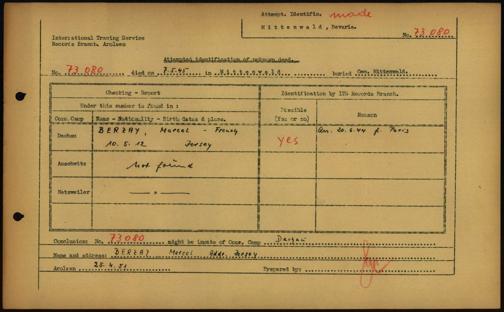 Attempt. Identific. made
Mittenwald, Bavaria.
No. 73 080
International Tracing Service
Records Branch. Arolsen
Attempted identification of unknown dead.
No. 73 080 died on 7.5.45 in Mittenwald buried Cem. Mittenwald.
Checking - Report
Identification by ITS Records Branch.
Under this number is found in :
Possible
(Yes or no)
Reason
Conc. Camp
Name - Nationality - Birth dates & place.
Dachau
BERZAY, Marcel - French
10. 5. 12 Jersey
yes
arr. 20.6.44 f. Paris
Auschwitz
not found
Natzweiler
— " —
Conclusion: No. 73 080 might be inmate of Conc. Camp Dachau
Name and address: BERZAY Marcel Addr. Jersey
Arolsen 25.4.50.
Prepared by: